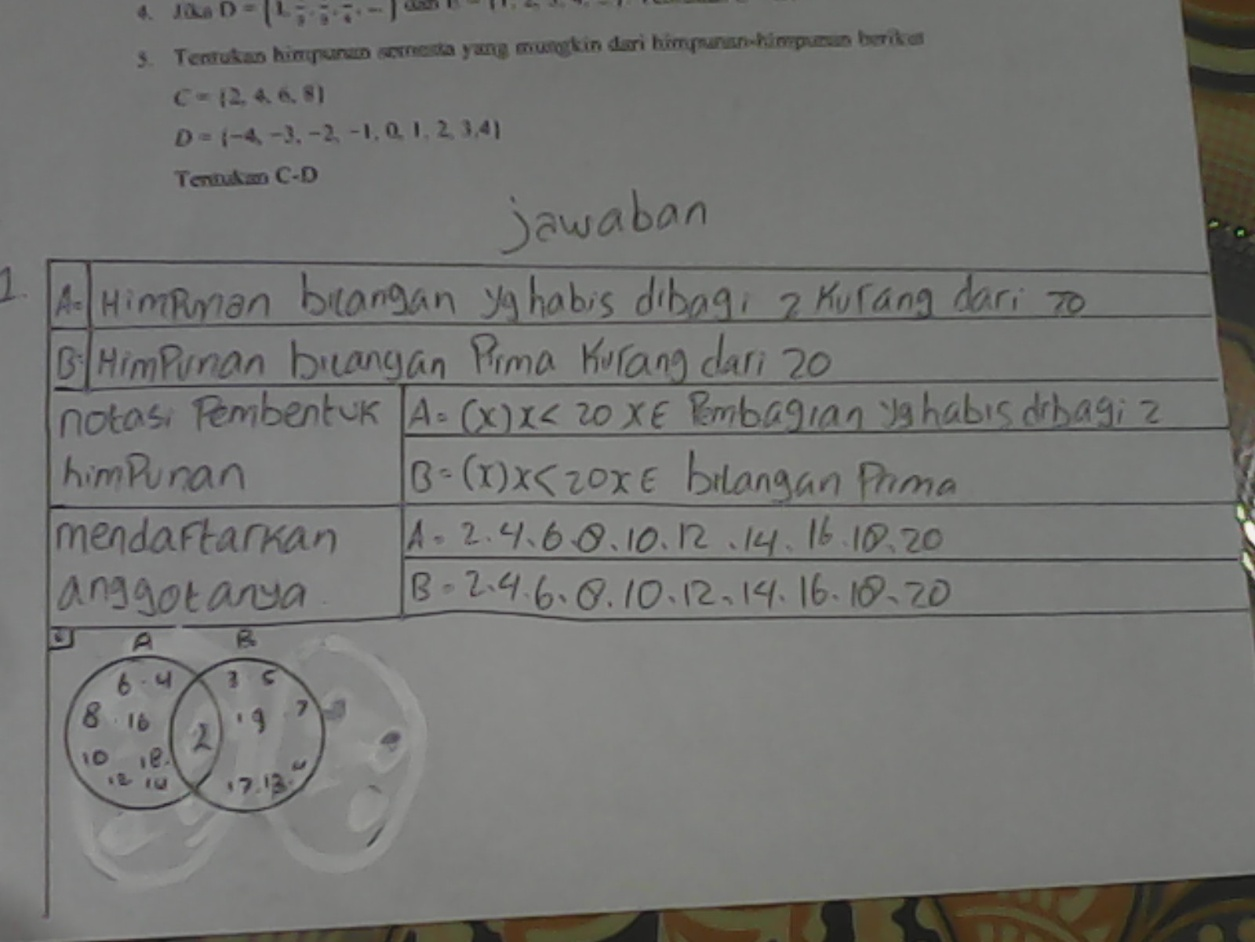 4. Jika D = {1,
5. Tentukan himpunan semesta yang mungkin dari himpunan-himpunan berikut
C = {2, 4, 6, 8}
D = {-4, -3, -2, -1, 0, 1, 2, 3,4}
Tentukan C-D
jawaban
1.
A= HimPunan bilangan yg habis dibagi 2 Kurang dari 20
B= HimPunan bilangan Prima Kurang dari 20
notasi Pembentuk himPunan
A= (x) x < 20 x ∈ Pembagian yg habis dibagi 2
B=(x) x < 20 x ∈ bilangan Prima
mendaftarkan anggotanya.
A= 2.4.6.8.10.12.14.16.18.20
B= 2.4.6.8.10.12.14.16.18.20
A B
6.4 3 5
8.16 2 19 7
10 18.
12 14 17.13.11